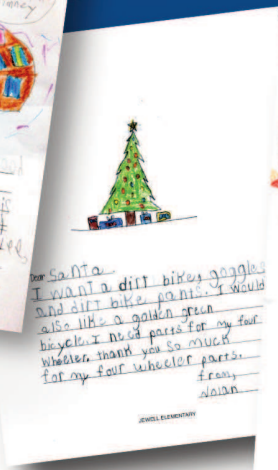 Dear Santa
I want a dirt bike, goggles
and dirt bike pants. I would
also like a golden green
bicycle. I need parts for my four
wheeler. thank you so much
for my four wheeler parts.
from,
Nolan
JEWELL ELEMENTARY